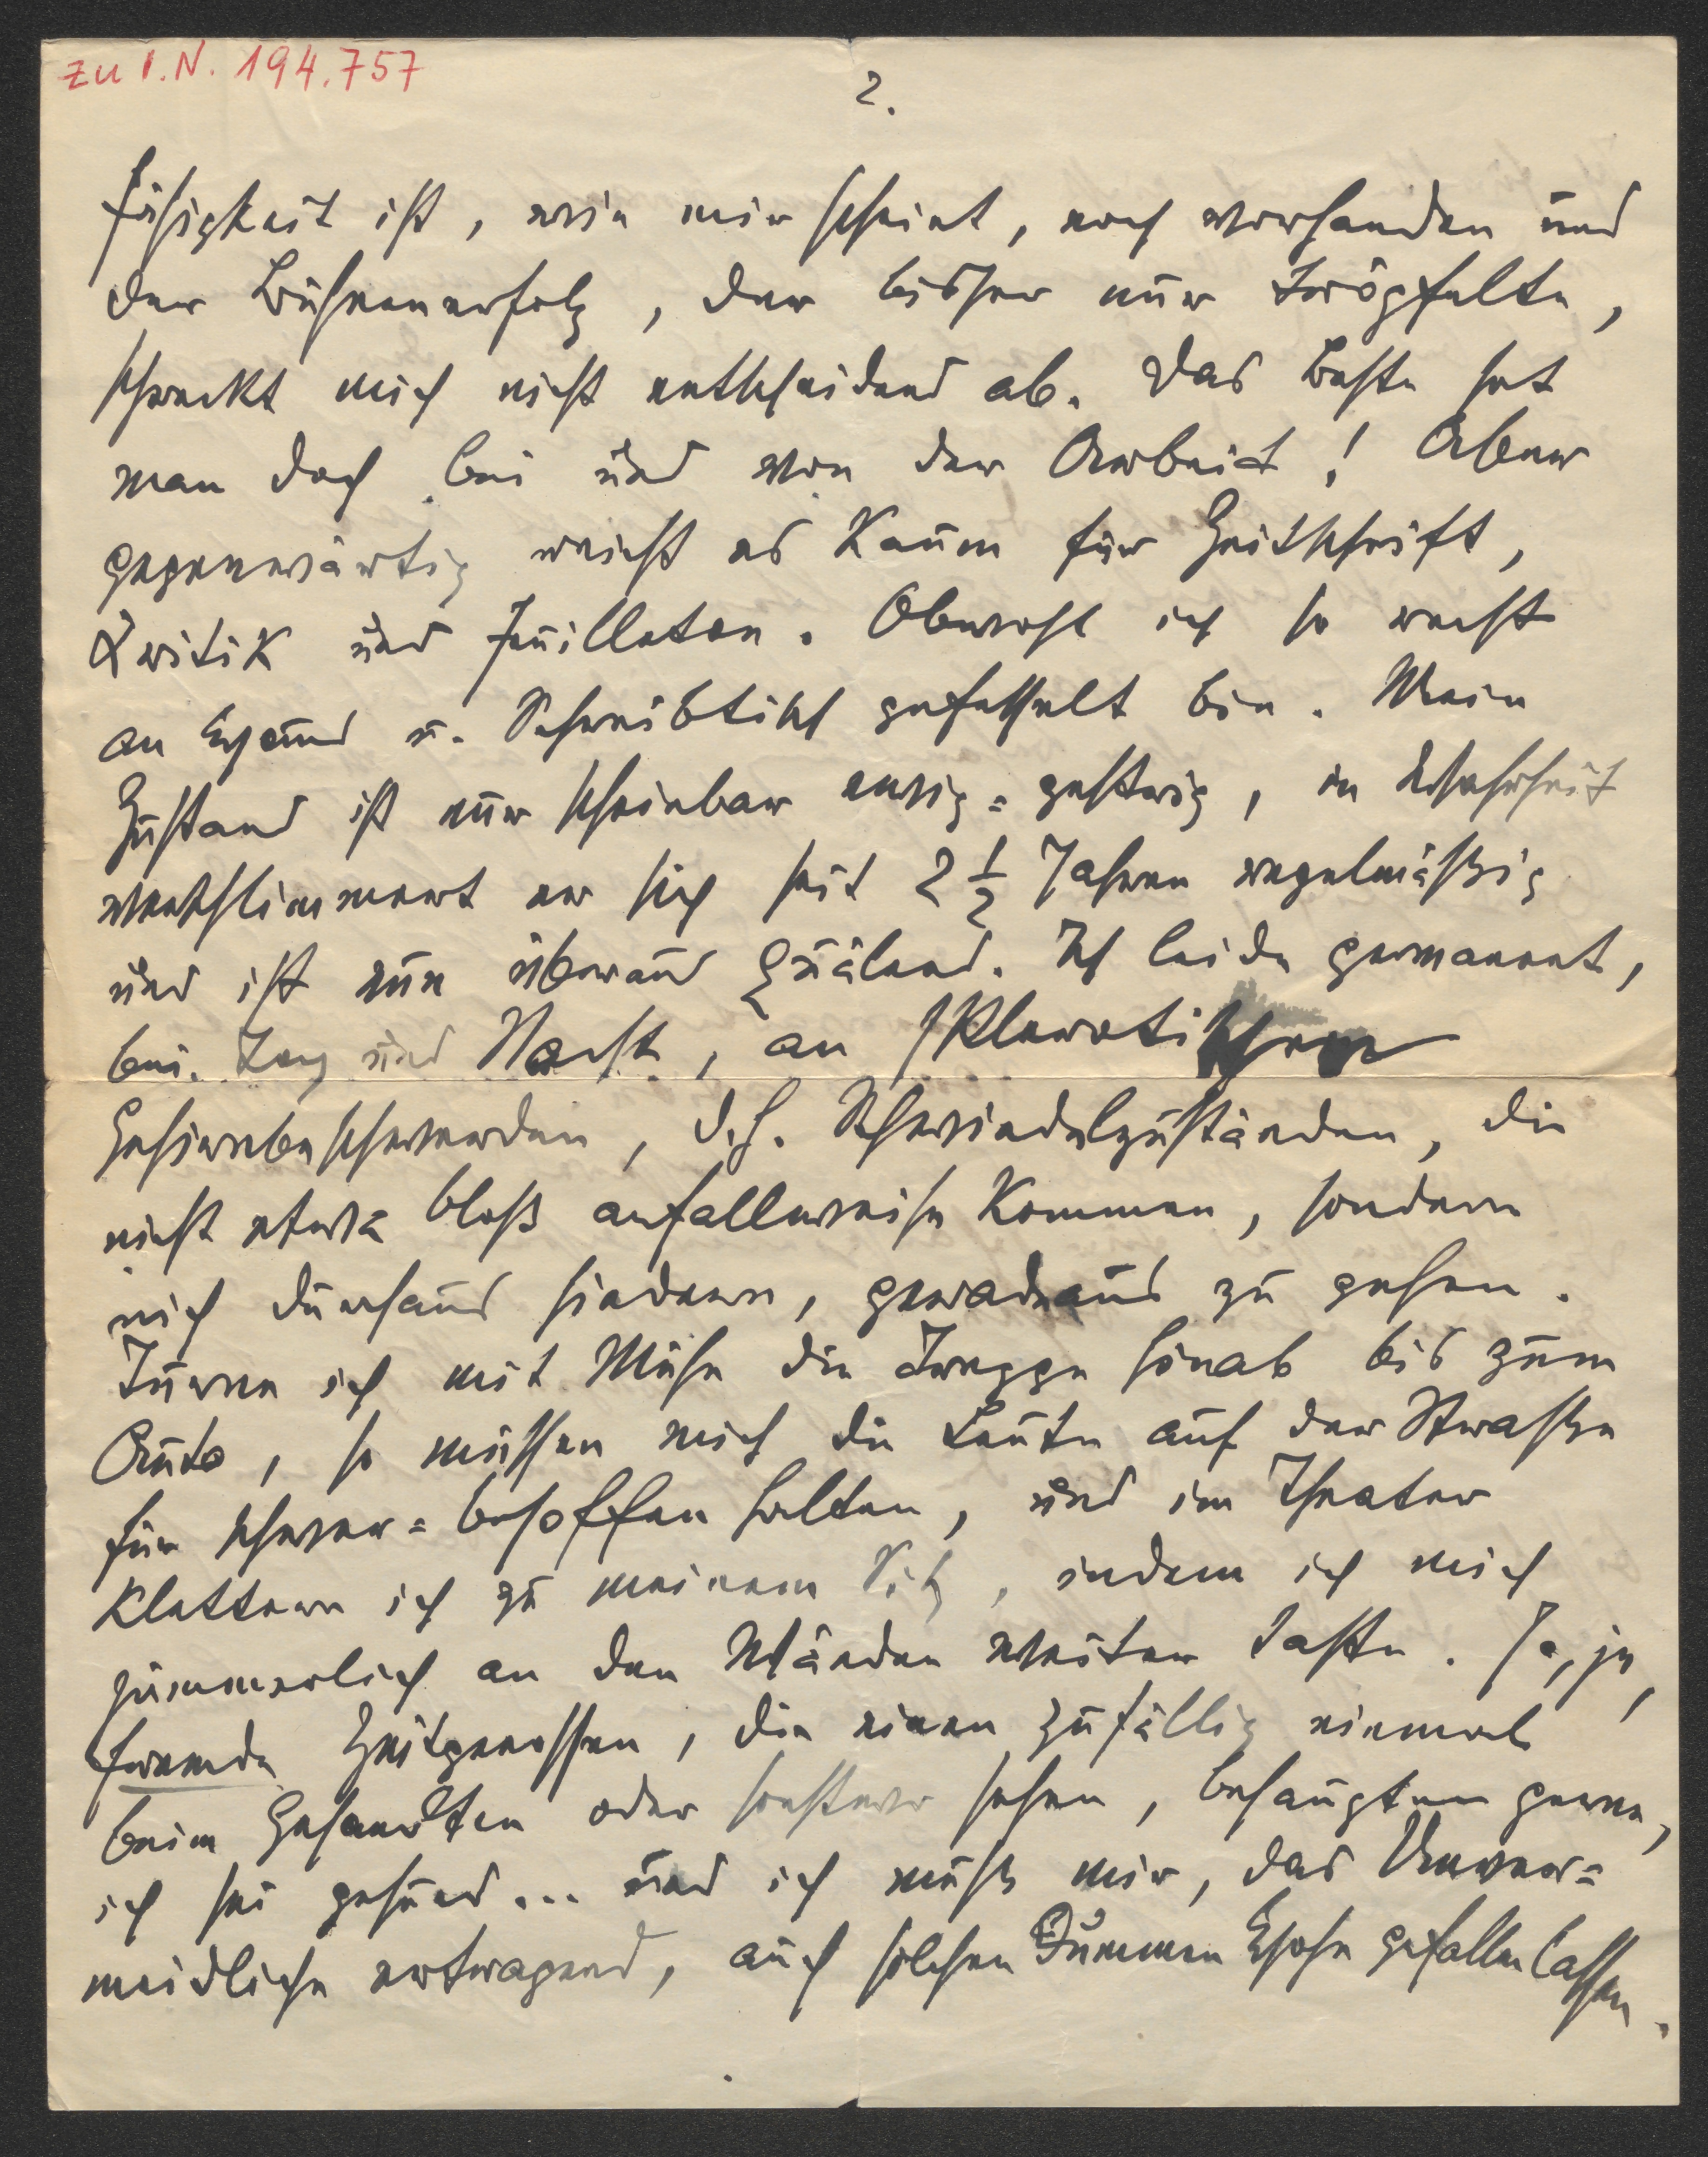 zu I.N. 194.757
2.
fähigkeit ist, wie mir scheint, noch vorhanden und
der Bühnenerfolg, der bisher nur tröpfelte,
schreckt mich nicht entscheidend ab. Das Beste hat
man doch bei und von der Arbeit! Aber
gegenwärtig reicht es kaum für Zeitschrift,
Kritik und Feuilleton. Obwohl ich so recht
an Haus u. Schreibtisch gefesselt bin. Mein
Zustand ist nur scheinbar ewig=gestrig, in Wahrheit
verschlimmert er sich seit 2 ½ Jahren regelmäßig
und ist nun überaus quälend. Ich leide permanent,
bei Tag und Nacht, an sklerotischen
Gehirnbeschwerden, d.h. Schwindelzuständen, die
nicht etwa bloß anfallweise kommen, sondern
mich durchaus hindern, geradeaus zu gehen.
Turne ich mit Mühe die Treppe hinab bis zum
Auto, so müssen mich die Leute auf der Straße
für schwer=besoffen halten, und im Theater
klettere ich zu meinem Sitz, indem ich mich
jämmerlich an den Wänden weiter taste. Ja, ja,
fremde Zeitgenossen, die einen zufällig einmal
beim Gesandten oder sonstwo sehen, behaupten gerne,
ich sei gesund... und ich muß mir, das Unver=
meidliche ertragend, auch solchen dummen gefallen lassen.